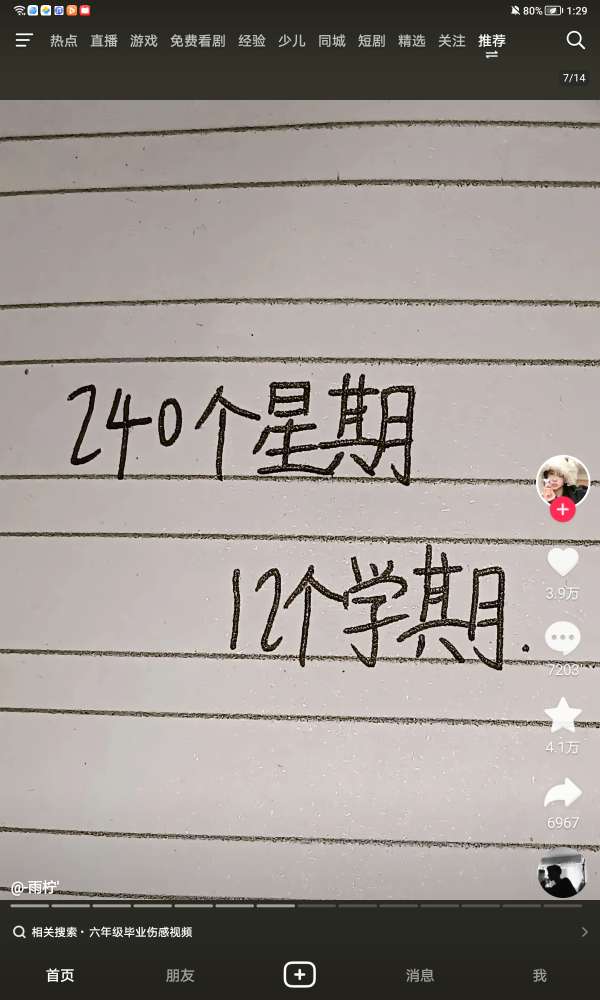 80% 1:29
热点 直播 游戏 免费看剧 经验 少儿 同城 短剧 精选 关注 推荐
7/14
240个星期
12个学期.
3.9万
7203
4.1万
6967
@-雨柠'
相关搜索·六年级毕业伤感视频
首页 朋友 消息 我